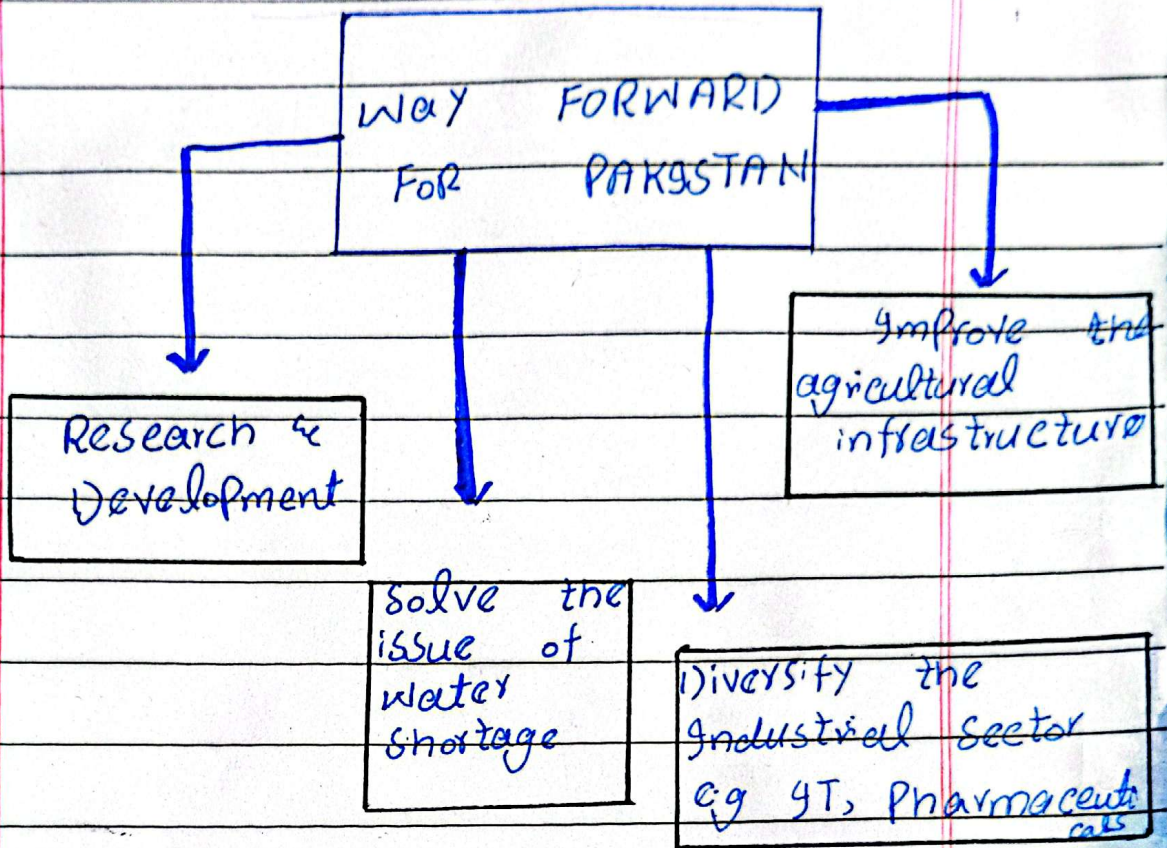 WAY FORWARD
FOR PAKISTAN
Research &
Development
Solve the
issue of
water
shortage
Diversify the
Industrial Sector
e.g IT, Pharmaceuti
cals
Improve the
agricultural
infrastructure